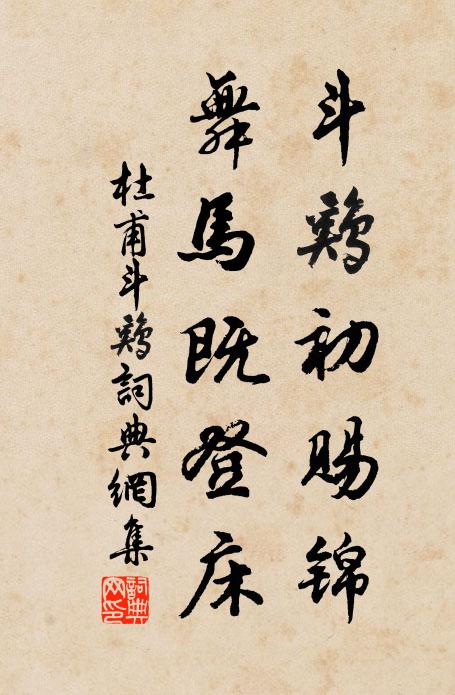 斗鷄初賜錦
舞馬既登床
杜甫斗鷄詞典網集
詞典网印